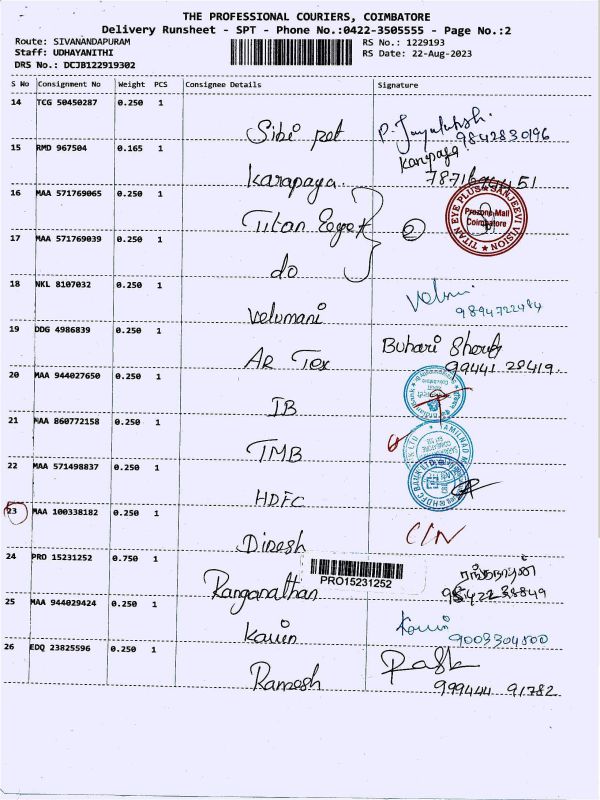 THE PROFESSIONAL COURIERS, COIMBATORE
Delivery Runsheet - SPT - Phone No.:0422-3505555 - Page No.:2
Route: SIVANANDAPURAM RS No.: 1229193
Staff: UDHAYANITHI RS Date: 22-Aug-2023
DRS No.: DCJB122919302
S No Consignment No Weight PCS Consignee Details Signature
14 TCG 50450287 0.250 1
Sibi pet 9842830196
15 RMD 967504 0.165 1 Karapaya
Karapaya.
16 MAA 571769065 0.250 1
Titan Eye+
TITAN EYE PLUS ★ SANJEEVI VISION ★
Prozone Mall
Coimbatore
17 MAA 571769039 0.250 1
do
18 NKL 8107032 0.250 1
Velumani 9894722484
19 DDG 4986839 0.250 1 Buhari
AR Tex 99441 28419.
20 MAA 944027650 0.250 1
IB
21 MAA 860772158 0.250 1
TMB
22 MAA 571498837 0.250 1
HDFC
23 MAA 100338182 0.250 1
Dinesh C/N
24 PRO 15231252 0.750 1
PRO15231252
Ranganathan
25 MAA 944029424 0.250 1
Kavin 9003304800
26 EDQ 23825596 0.250 1
Ramesh 999444 91782